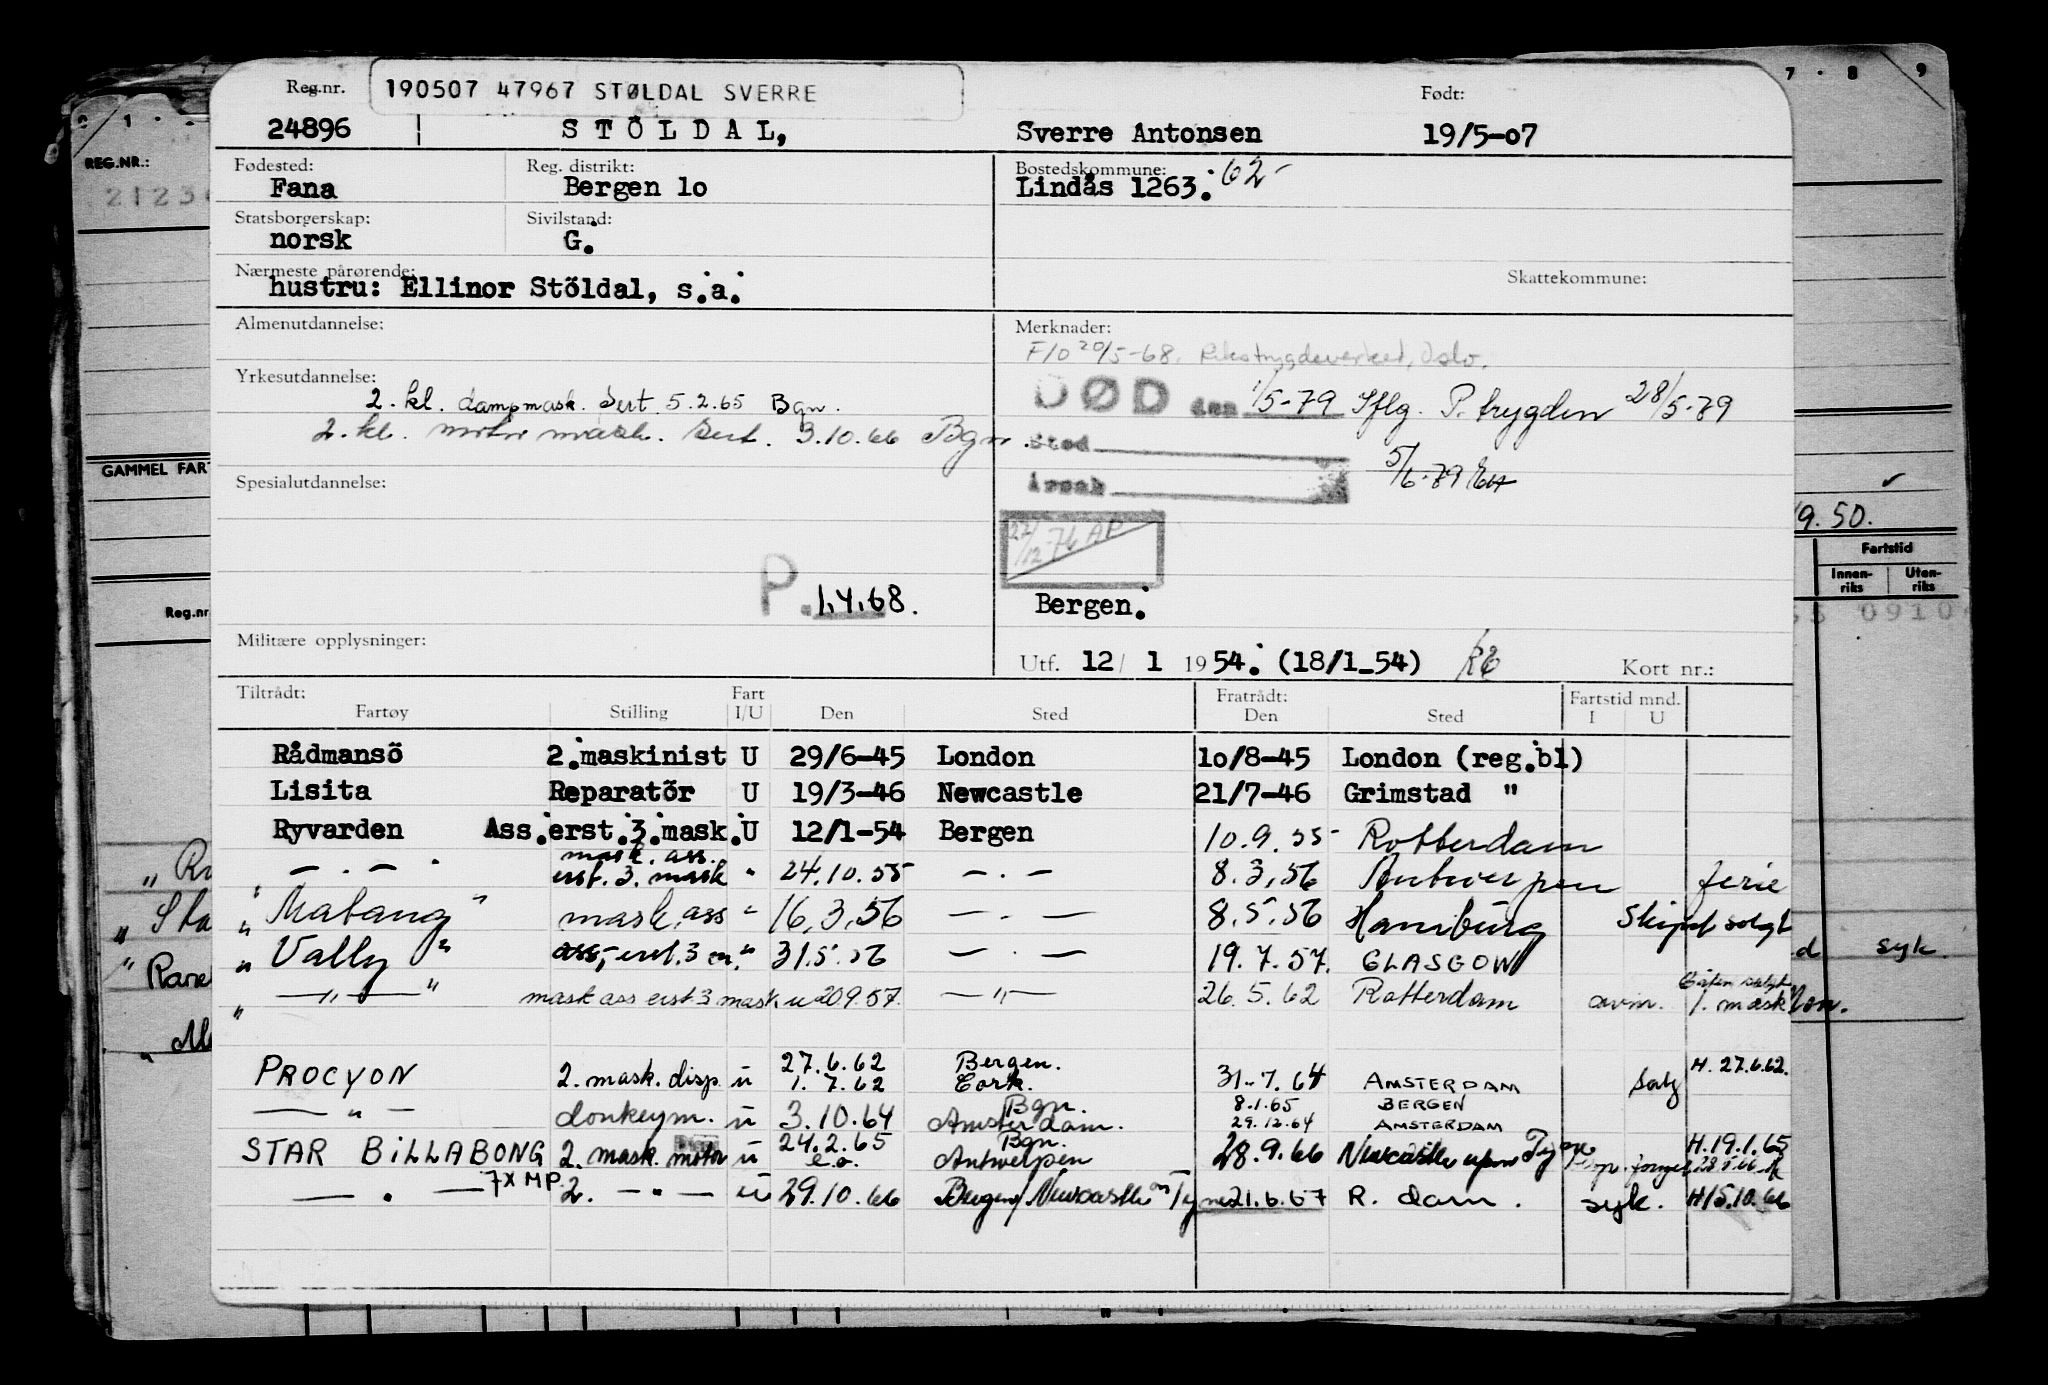 Reg.nr. 190507 47967 STØLDAL SVERRE Født:
24896 STÖLDAL, Sverre Antonsen 19/5-07
Fødested: Reg. distrikt: Bostedskommune: 62
Fana Bergen lo Lindås 1263.
Statsborgerskap: Sivilstand:
norsk G.
Nærmeste pårørende: Skattekommune:
hustru: Ellinor Stöldal, s.a.
Almenutdannelse: Merknader:
F/O 20/5-68. Rikstrygdeverket, Oslo.
Yrkesutdannelse:
2. kl. dampmask. Sert 5.2.65 Bgn.
DØD den 1/5-79 Iflg. P. trygden 28/5-79
2. kl. motor mask. Sert. 3.10.66 Bgn.
Sted
5/6-79
Årsak
Spesialutdannelse:
22/12-76 AP
P. 1.4.68.
Bergen.
Militære opplysninger:
Utf. 12/ 1 1954. (18/1-54) Kort nr.:
Tiltrådt: Fart Fratrådt: Fartstid mnd.
Fartøy Stilling I/U Den Sted Den Sted I U
Rådmansö 2.maskinist U 29/6-45 London lo/8-45 London (reg.bl)
Lisita Reparatör U 19/3-46 Newcastle 21/7-46 Grimstad "
Ryvarden Ass.erst.3.mask.U 12/1-54 Bergen 10.9.55 Rotterdam
" — . — " mask. ass. erst. 3. mask " 24.10.55 — . — 8.3.56 Antwerpen ferie
" Matang " mask. ass " 16.3.56 — . — 8.5.56 Hamburg Skipet solgt
" Vally " ass, erst. 3 m. " 31.5.56 — . — 19.7.57. GLASGOW
" — " — " mask ass erst 3 mask u 20.9.57. — " — 26.5.62 Rotterdam avm. 1. mask
PROCYON 2. mask. disp. u 27.6.62 Bergen. H. 27.6.62.
1.7.62 Cork. 31.7.64 AMSTERDAM Salg
— " — donkeym. u 3.10.64 Bgn. Amsterdam. 8.1.65 BERGEN
29.12.64 AMSTERDAM
STAR BILLABONG 2. mask. motor u 24.2.65 Bgn. H.19.1.65
e.o. Antwerpen 28.9.66 Newcastle upon Tyne
— . — 7X MP. 2. — " — u 29.10.66 Bergen/Newcastle on Tyne 21.6.67 R. dam. syk. H15.10.66
REG.NR.:
GAMMEL FAR
Reg.nr
7 · 8 9
9.50.
Fartstid
Innen-riks Uten-riks
0910
syk.